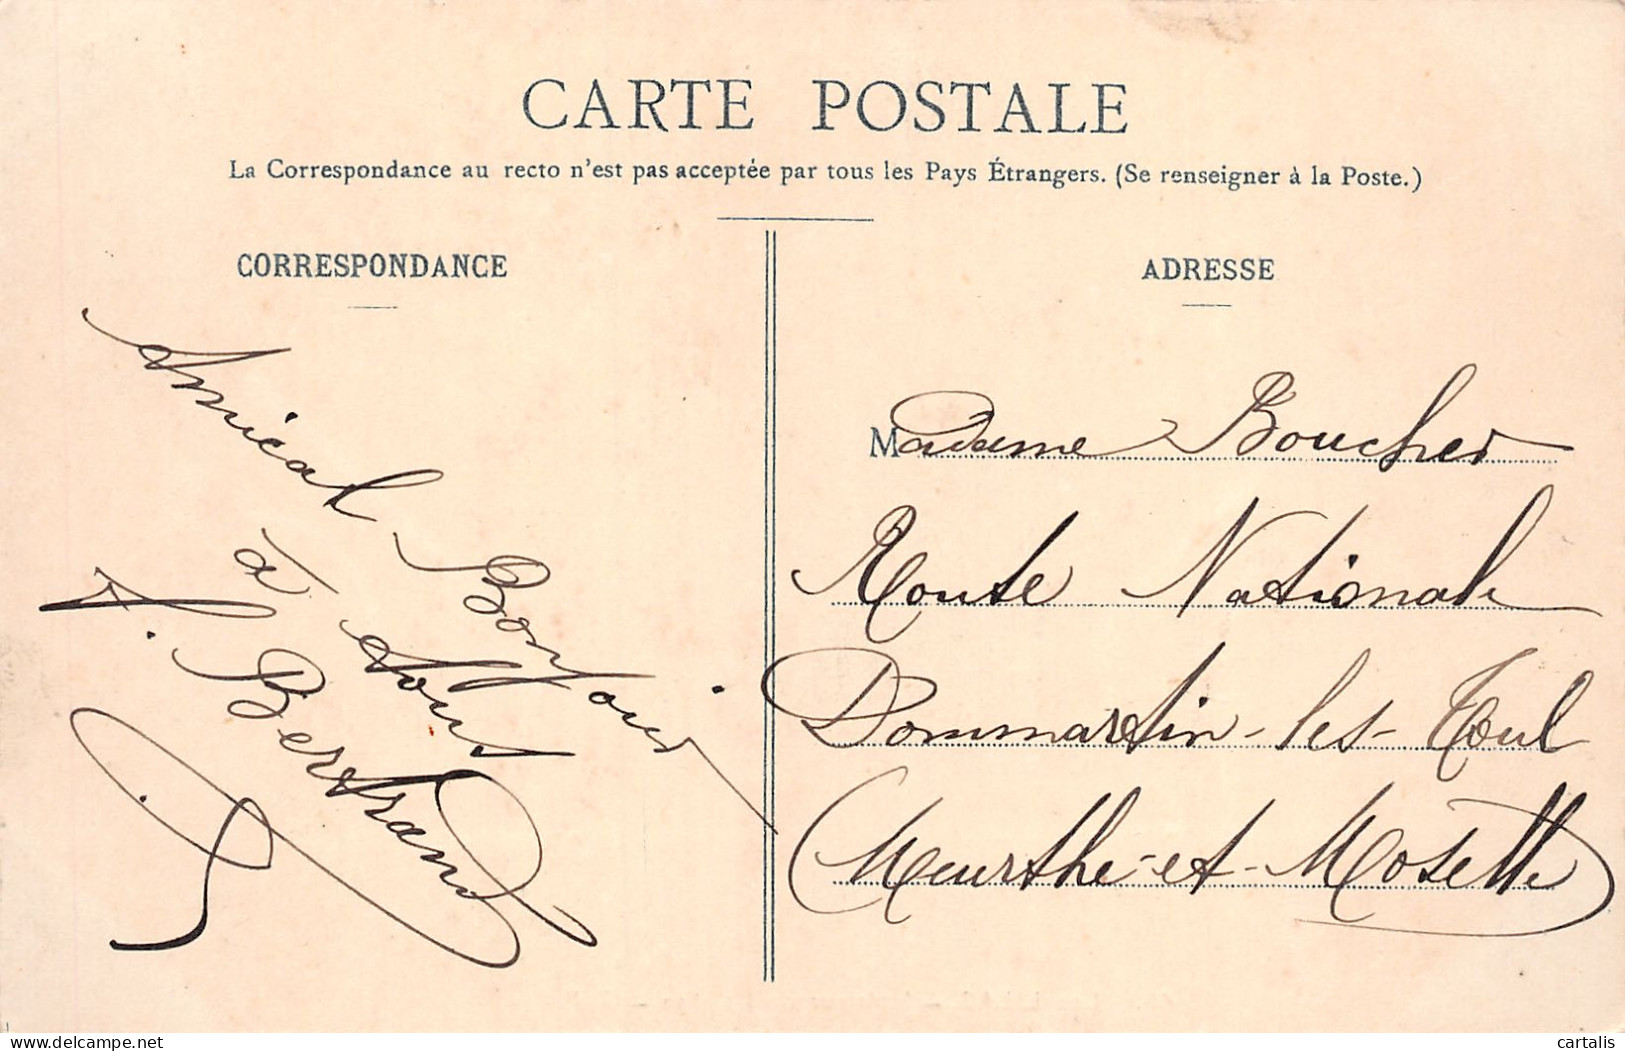 CARTE POSTALE
La Correspondance au recto n'est pas acceptée par tous les Pays Étrangers. (Se renseigner à la Poste.)
CORRESPONDANCE
Amical Bonjour
à tous
F. Bertrand
ADRESSE
Madame Boucher
Route Nationale
Dommartin-les-Toul
(Meurthe-et-Moselle)
cartalis
www.delcampe.net